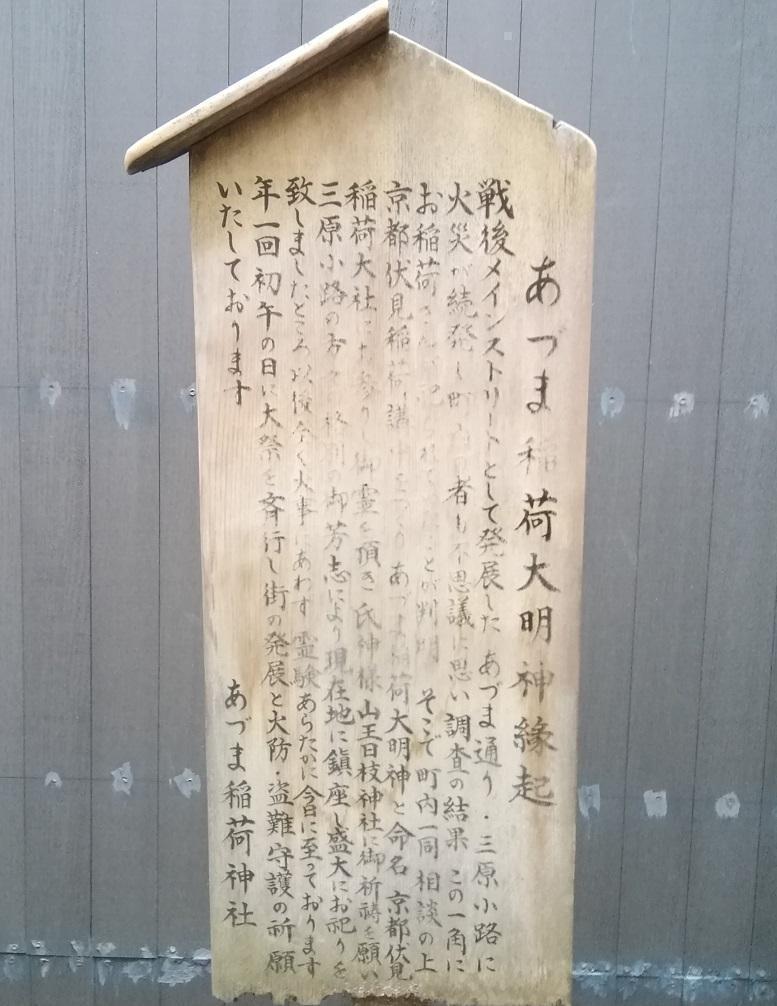 あづま稲荷大明神縁起
戦後メインストリートとして発展した あづま通り・三原小路に
火災が続発し町内の者も不思議に思い調査の結果 この一角に
お稲荷さんが祀られて ことが判明 そこで町内一同相談の上
京都伏見稲荷講中をつくり あづま稲荷大明神と命名 京都伏見
稲荷大社にお参りし御霊を頂き氏神様山王日枝神社に御祈祷を願い
三原小路の 格別の御芳志により現在地に鎮座し盛大にお祀りを
致しましたところ以後全く火事にあわず霊験あらたかに今日に至っております
年一回初午の日に大祭を斉行し街の発展と火防・盗難守護の祈願
いたしております
あづま稲荷神社